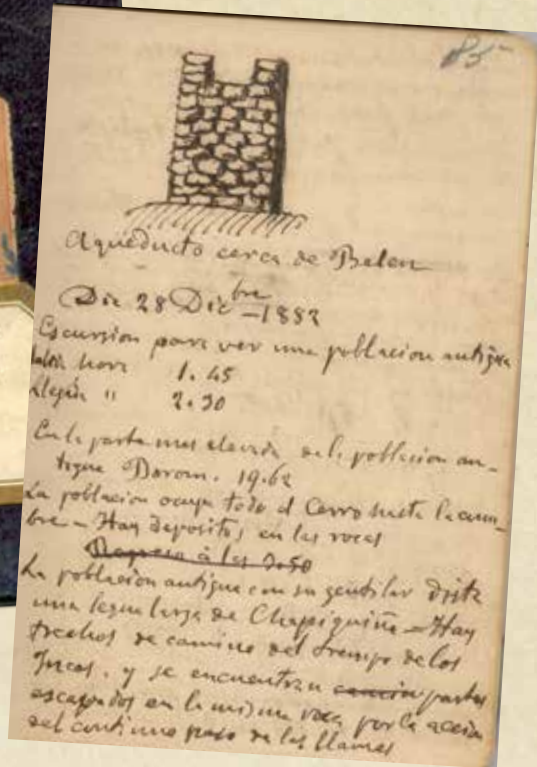 85
Aqueducto cerca de Belen
Dia 28 Dicbre - 1883
Escursion para ver una poblacion antigua
Salida hora 1.45
Llegada " 2.30
En la parte mas elevada de la poblacion an-
tigua Barom. 19.62
La poblacion ocupa todo el Cerro hasta la cum-
bre - Hay depositos en las rocas
Regreso á las 3.50
La poblacion antigua con su gentilar dista
una legua larga de Chapiquiña - Hay
trechos de camino del tiempo de los
Incas, y se encuentran partes
escapados en la misma roca por la accion
del continuo paso de las llamas